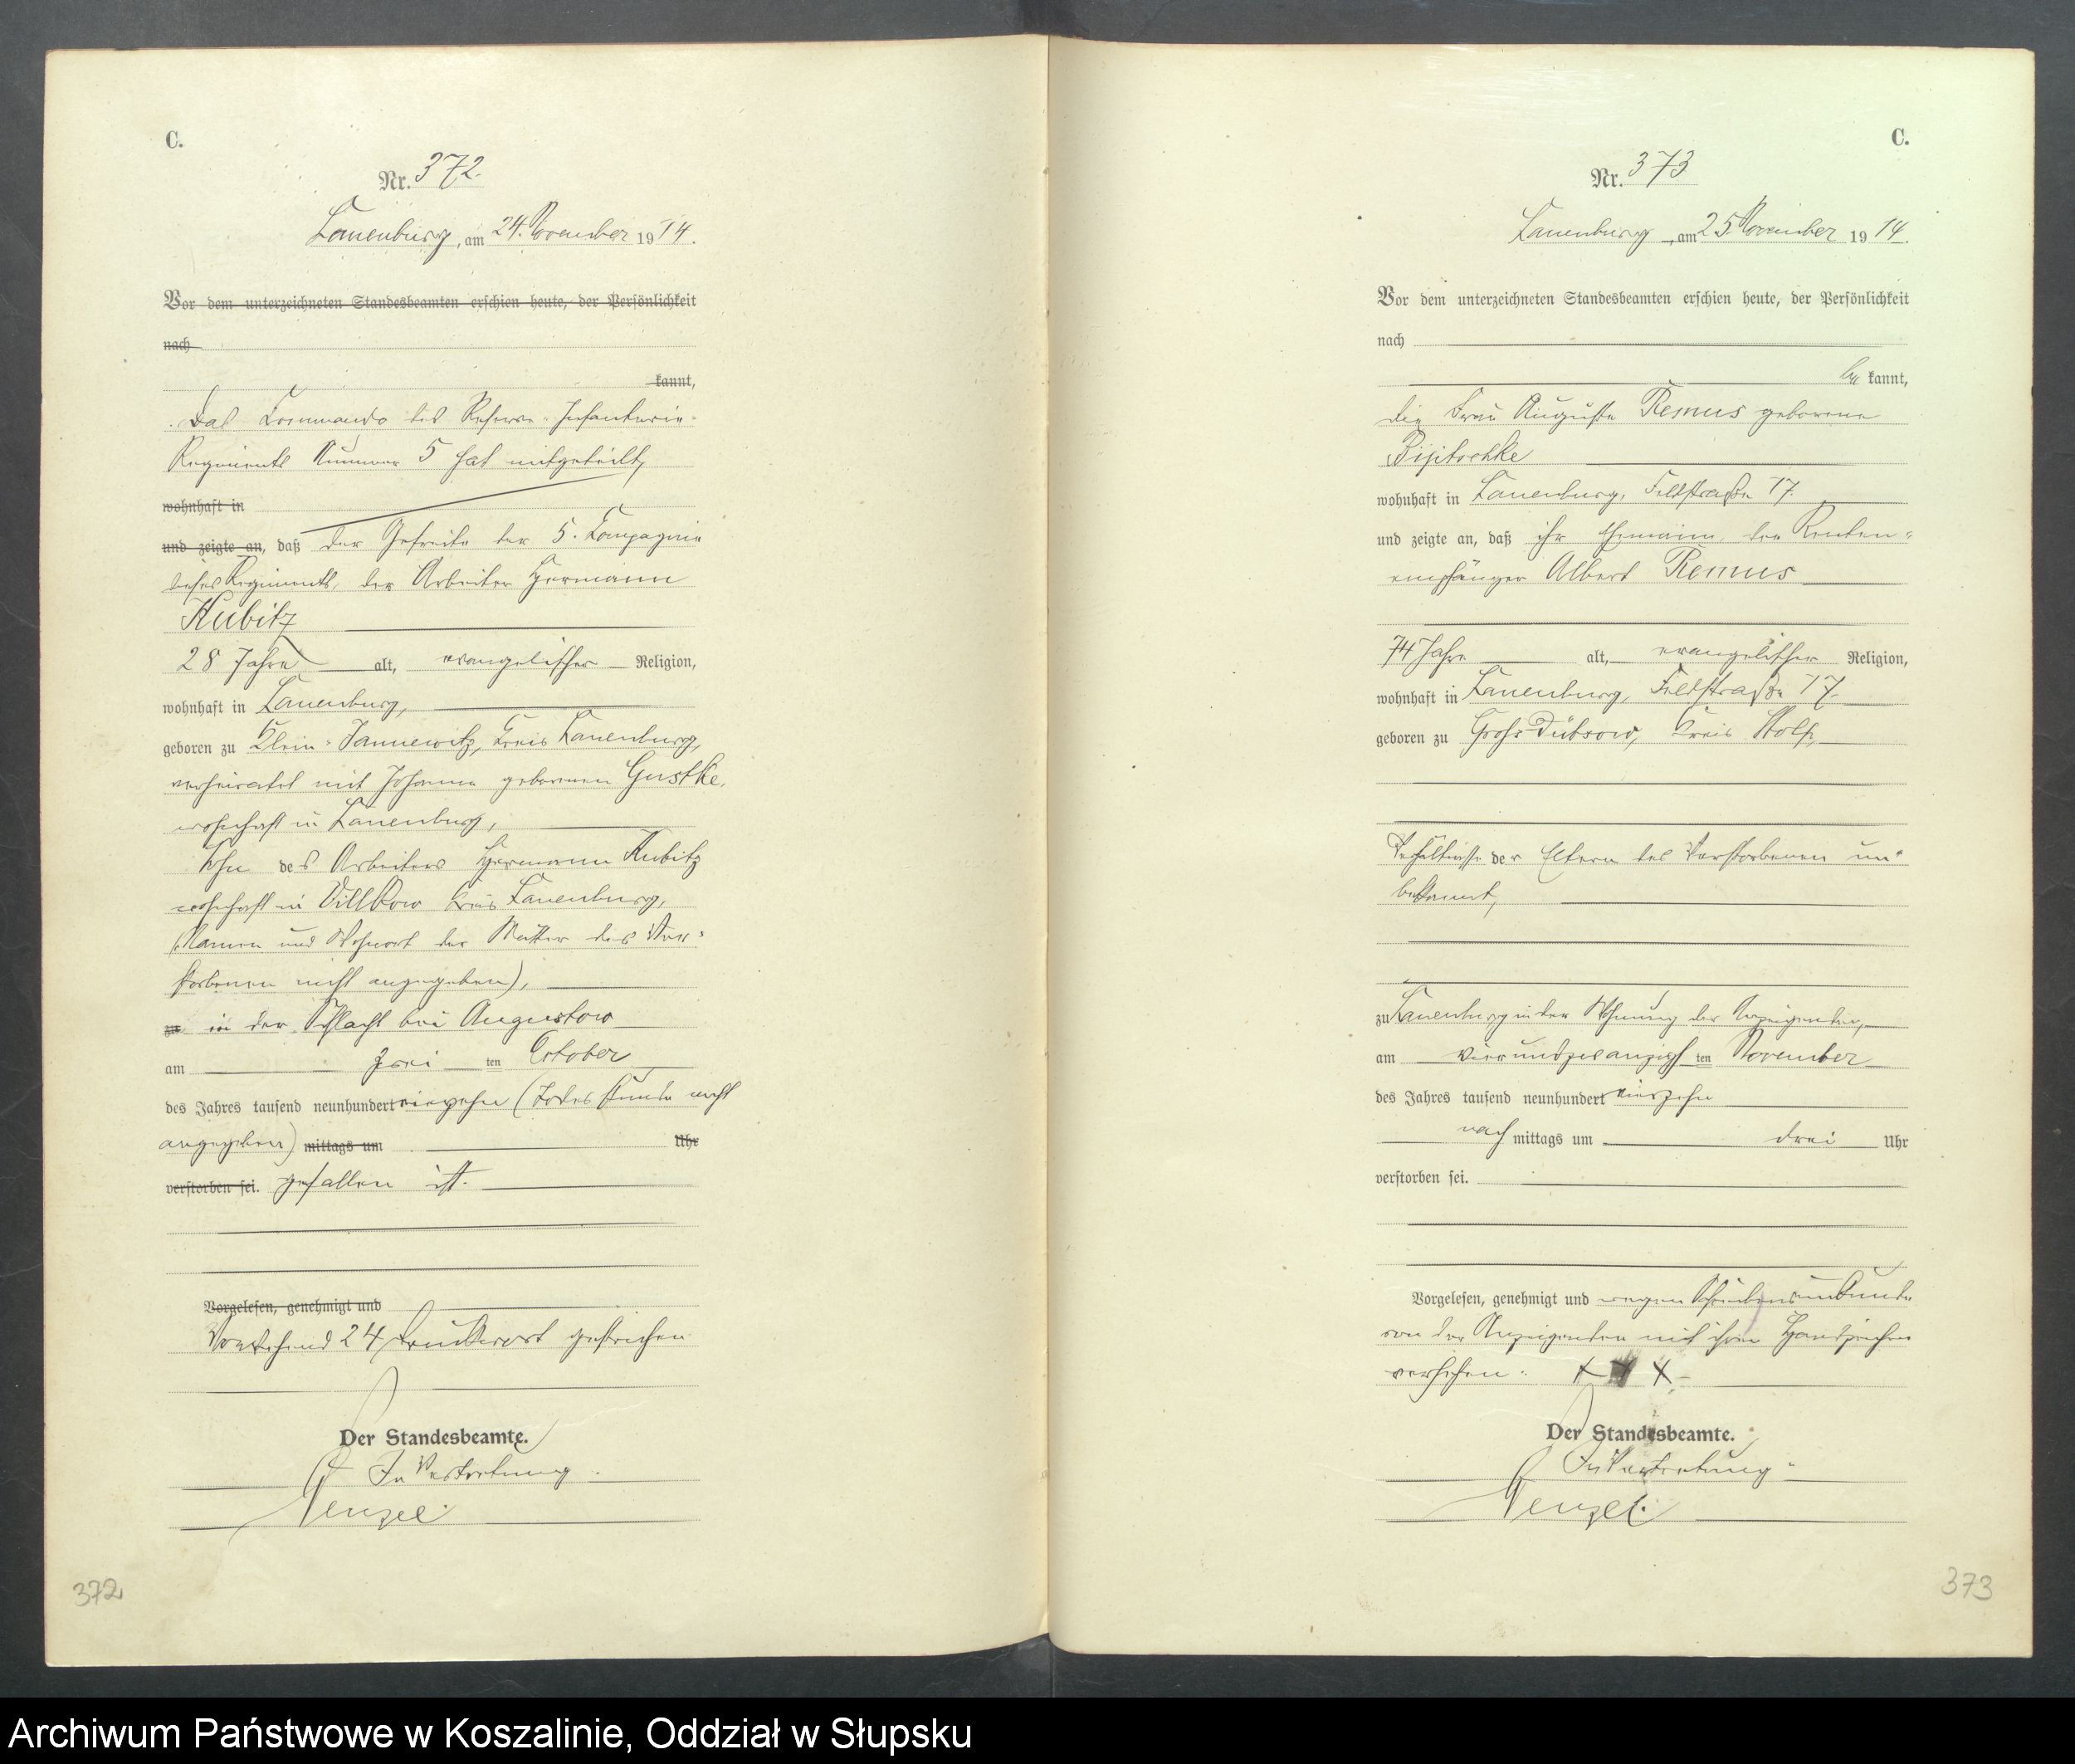 C.
Nr. 372.
Lauenburg, am 24. November 1914.
Vor dem unterzeichneten Standesbeamten erschien heute, der Persönlichkeit
nach
kannt,
Das Commando des Reserve-Infanterie-
Regiments Nummer 5 hat mitgeteilt,
wohnhaft in
und zeigte an, daß der Gefreite der 5. Compagnie
dieses Regiments, der Arbeiter Hermann
Kubitz
28 Jahre alt, evangelischer Religion,
wohnhaft in Lauenburg,
geboren zu Klein-Jannewitz, Kreis Lauenburg,
verheiratet mit Johanna geborenen Gustke,
wohnhaft in Lauenburg,
Sohn des Arbeiters Hermann Kubitz
wohnhaft in Villkow Kreis Lauenburg,
(Namen und Wohnort der Mutter des Ver-
storbenen nicht angegeben),
zu in der Schlacht bei Augustow
am zwei ten October
des Jahres tausend neunhundert vierzehn (Todesstunde nicht
angegeben) mittags um Uhr
verstorben sei. gefallen ist.
Vorgelesen, genehmigt und
Vorstehend 24 Druckwort gestrichen
Der Standesbeamte.
In Vertretung.
Wenzel.
372
C.
Nr. 373
Lauenburg, am 25. November 1914.
Vor dem unterzeichneten Standesbeamten erschien heute, der Persönlichkeit
nach
be kannt,
die Frau Auguste Remus geborene
wohnhaft in Lauenburg, Feldstraße 17.
und zeigte an, daß ihr Ehemann, der Renten-
empfänger Albert Remus
74 Jahre alt, evangelischer Religion,
wohnhaft in Lauenburg, Feldstraße 17.
geboren zu Groß Dübsow, Kreis Stolp,
Verhältnisse der Eltern des Verstorbenen un-
bekannt,
zu Lauenburg in der Wohnung der Anzeigenden,
am vierundzwanzigsten November
des Jahres tausend neunhundert vierzehn
nach mittags um drei Uhr
verstorben sei.
Vorgelesen, genehmigt und wegen Schreibensunkunde
von der Anzeigenden mit ihren Handzeichen
versehen: x x x
Der Standesbeamte.
In Vertretung:
Wenzel.
373
Archiwum Państwowe w Koszalinie, Oddział w Słupsku